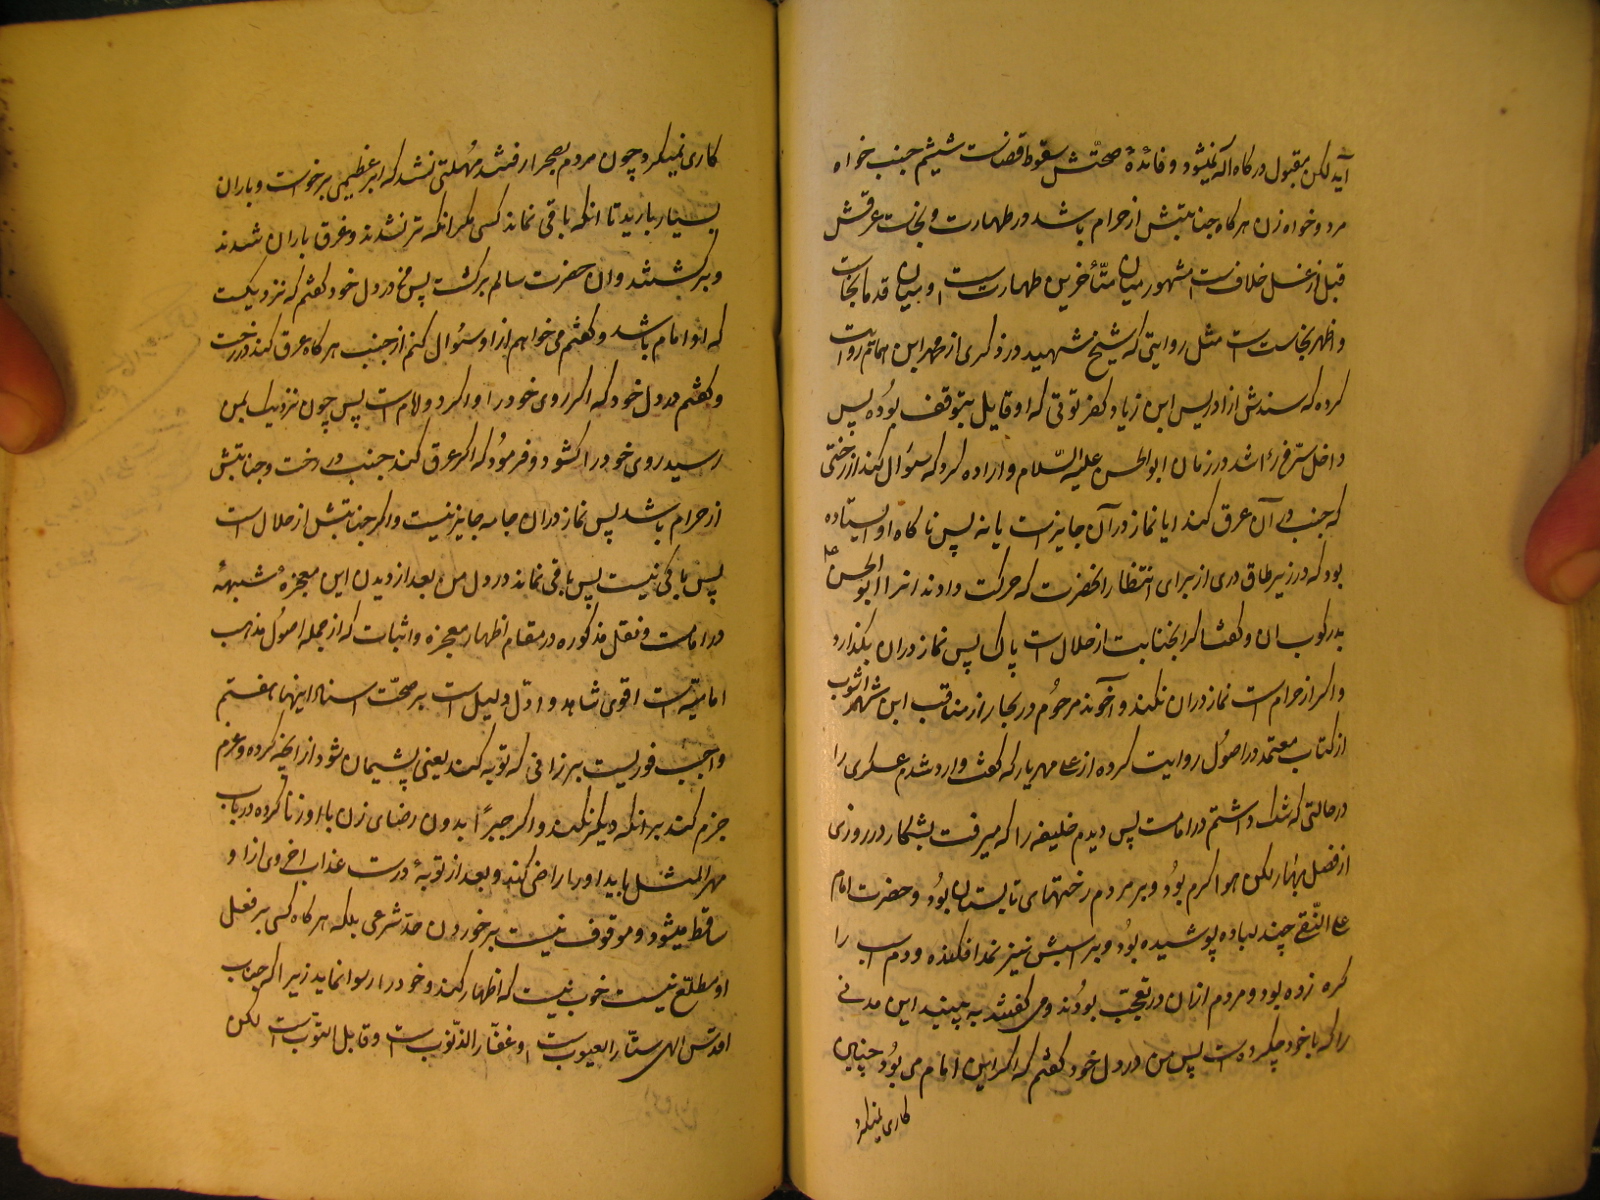 آید لکن مقبول درگاه اله نمیشود و فائدهٔ صحتّش سقوط قضاست ششم جنب خواه
مرد و خواه زن هرگاه جنابتش از حرام باشد در طهارت و نجاست عرقش
قبل از غسل خلافست مشهور میان متّأخرین طهارتست و میان قدما نجاست
و اظهر نجاستست مثل روایتی که شیخ شهید در ذکری از محمد ابن همام روایت
کرده که سندش از ادریس ابن زیاد کفرتوثی که او قایل بتوقف بوُده پس
داخل سرّ من رءا شد در زمان ابوالحسن علیه السّلام و اراده کرد که سئوال کند از رختی
که جنب در آن عرق کند ایا نماز در آن جایزست یا نه پس ناگاه او ایستاده
بود که در زیر طاق دری از برای انتظار انحضرت که حرکت دادند انرا ابوالحسن ع
بدرکوب ان و گفت اگر جنابت از حلال است پاک پس نماز دران بگذارد
و اگر از حرام است نماز دران نکند و آخوند مرحوُم در بحار از مناقب ابن شهراشوب
از کتاب معتمد در اصوُل روایت کرده از علی مهریار که گفت وارد شدم عسکری را
در حالتی که شک داشتم در امامت پس دیدم خلیفه را که میرفت بشکار در روزی
از فصل بهار لکن هوا گرم بوُد و بر مردم رختهای تابستان بوُد و حضرت امام
علی النّقی ع چند لباده پوشیده بوُد و بر اسبش نیز نمد افکنده و دم اسب را
گره زده بود و مردم ازان در تعجّب بودُند و می گفتند به بینید این مدنی
را که با خود چکرده ست پس من در دل خود گفتم که اگر این امام می بوُد چنین
کاری نمیکرد
کاری نمیکرد و چون مردم بصحرا رفتند مُهلتی نشد که ابر عظیمی برخواست و باران
بسیار بارید تا انکه باقی نماند کسی مگر انکه تر نشدند و غرق باران شدند
و برگشتند و ان حضرت سالم برگشت پس من در دل خود گفتم که نزدیکست
که او امام باشد و گفتم می خواهم از او سئوال کنم از جنب هرگاه عرق کند در رخت
و گفتم در دل خود که اگر روی خود را وا کرد او امامست پس چون نزدیک بمن
رسید روی خود را کشود و فرموُد که اگر عرق کند جنب در رخت و جنابتش
از حرام باشد پس نماز در ان جامه جایز نیست و اگر جنابتش از حلال است
پس باکی نیست پس باقی نماند در دل من بعد از دیدن این معجزه شبههٔ
در امامت و نقل مذکوره در مقام اظهار معجزه و اثبات که از جمله اصوُل مذهب
امامیّه است اقوی شاهد و ادّل دلیل است بر صحّت اسناد اینها هفتم
واجب فوریست بر زانی که توبه کند یعنی پشیمان شود از انچه کرده و عزم
جزم کند بر انکه دیگر نکند و اگر جبراً بدون رضای زن با او زنا کرده در باب
مهر المثل باید او را راضی کند و بعد از توبهٔ درست عذاب اخروی از او
ساقط میشود و موقوف نیست بر خوردن حدّ شرعی بلکه هرگاه کسی بر فعل
او مطلّع نیست خوب نیست که اظهار کند و خود را رسوا نماید زیرا که جناب
اقدس الهی ستّار العیوبست و غفّار الذّنوب است و قابل التّوبست لکن